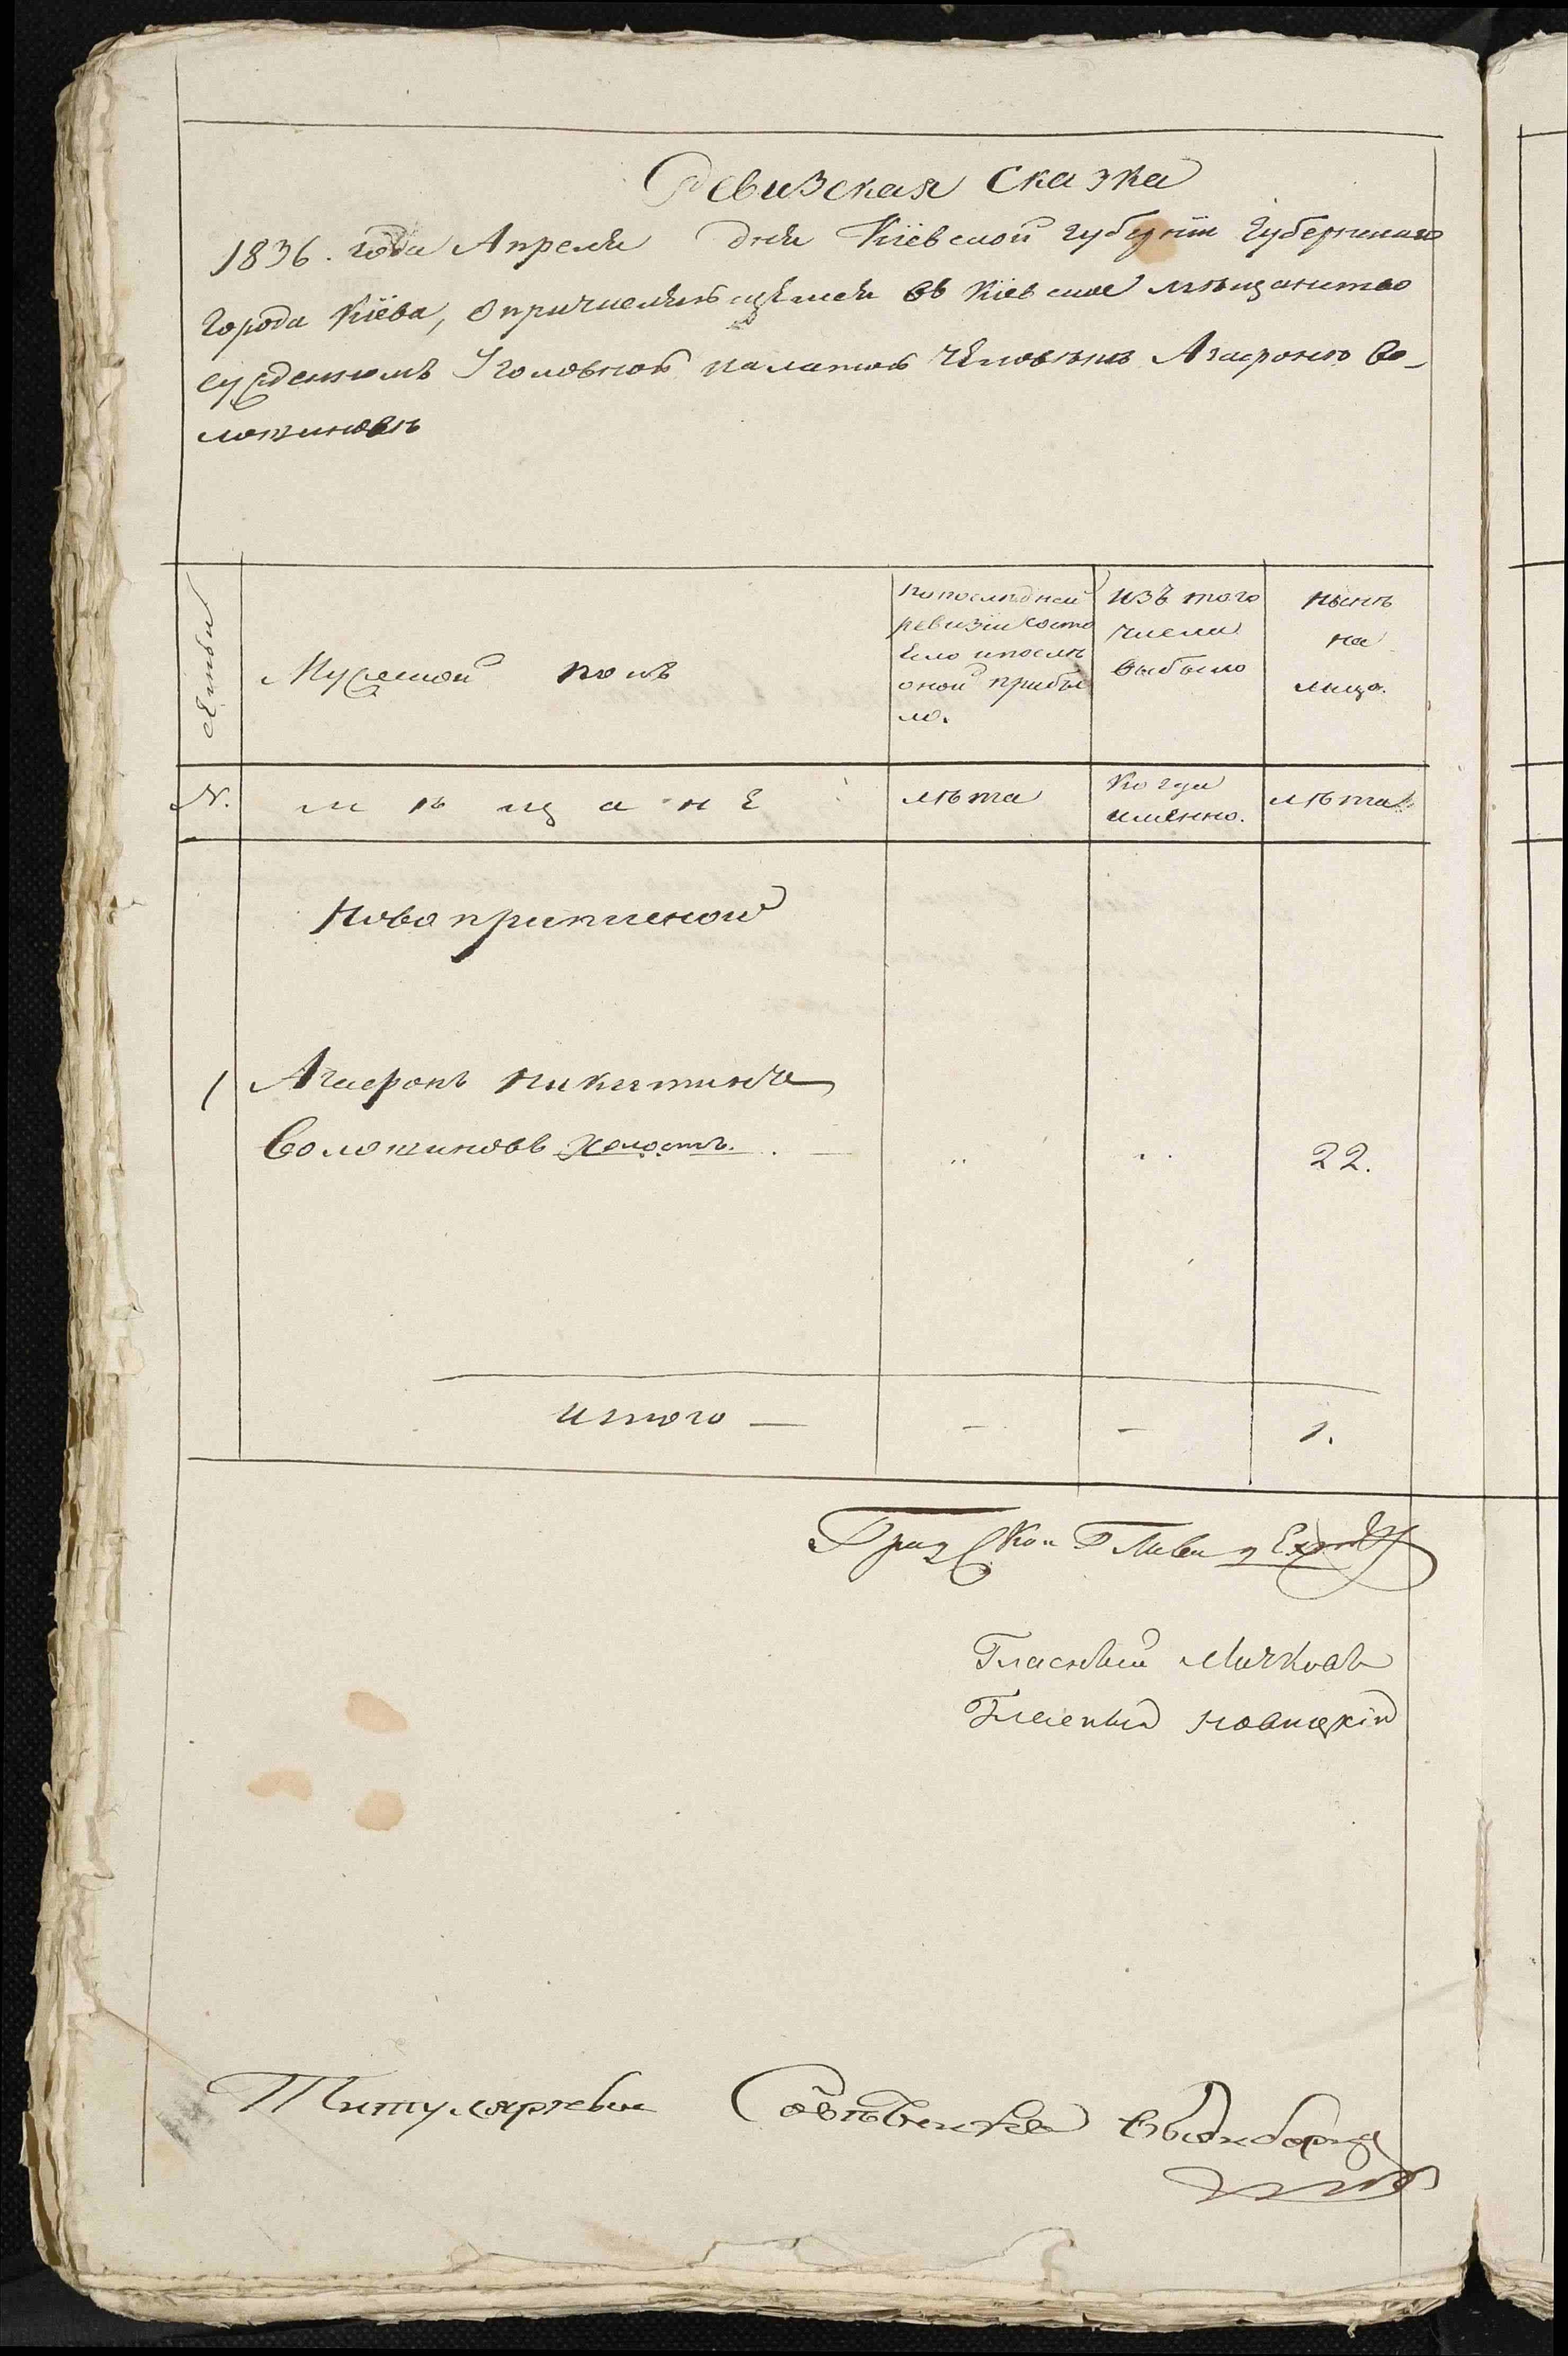 Ревизская Сказка
1836. года Апреля дня Кіевской губерніи Губернскаго
города Кіева, о причисляющемся въ Кіевское мѣщанство
сужденномъ Уголовной палатой человѣкѣ Агафонѣ Со-
лотиновѣ
Семьи
Мужеской полъ
по последней
ревизіи состо
яло и послѣ
оной прибы
ло.
изъ того
числа
выбыло
нынѣ
на
лицо.
N.
мѣщане
лѣта
когда
именно.
лѣта
Новоприписной
1 Агафонъ Никитинъ
Солотиновъ холостъ. 22.
Итого — - - 1.
Градской Глава
Гласный Личковъ
Гласный Новицкій
Титулярный Совѣтникъ